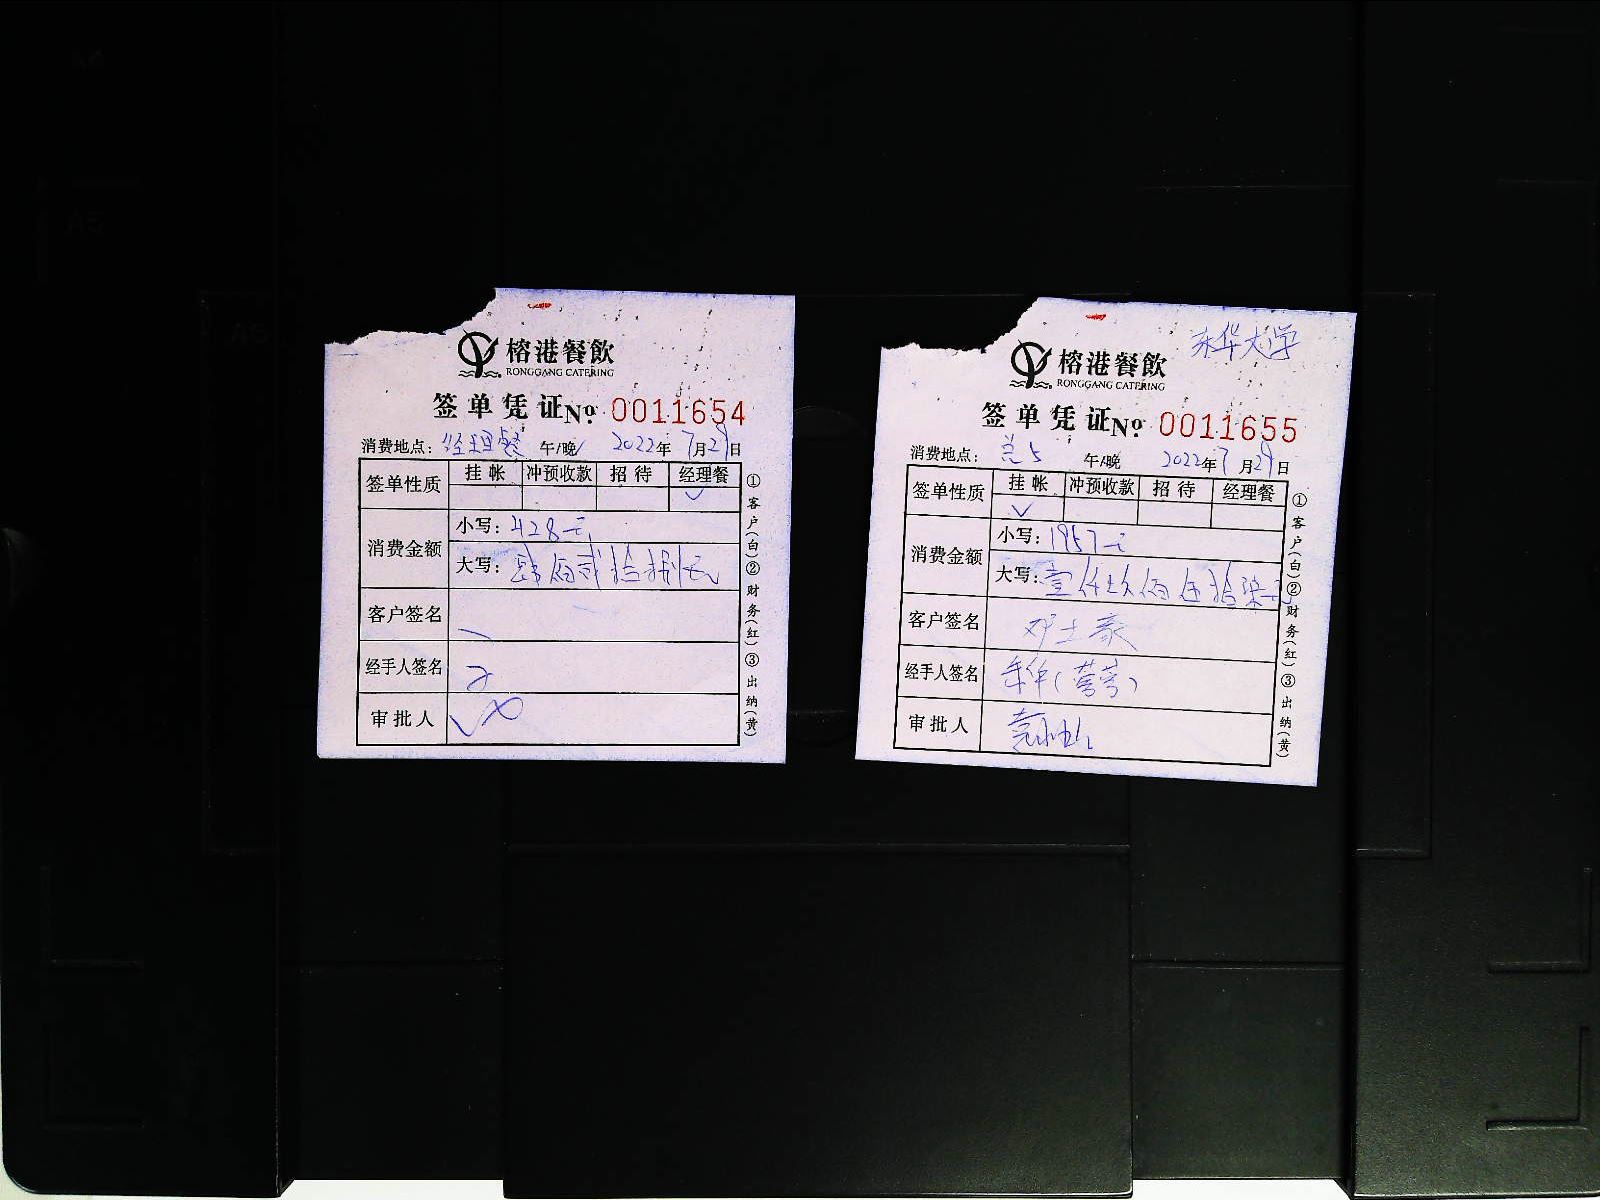 榕港餐飲
RONGGANG CATERING
签单凭证No. 0011654
消费地点：经理餐 午/晚 2022年7月29日
签单性质 挂帐 冲预收款 招待 经理餐
✓
消费金额
小写：428元
大写：肆佰贰拾捌元
客户签名
经手人签名
审批人
①客户(白)②财务(红)③出纳(黄)
东华大学
榕港餐飲
RONGGANG CATERING
签单凭证No. 0011655
消费地点： 午/晚 2022年7月29日
签单性质 挂帐 冲预收款 招待 经理餐
✓
消费金额
小写：1957元
大写：壹仟玖佰伍拾柒元
客户签名 邓士豪
经手人签名
审批人
①客户(白)②财务(红)③出纳(黄)